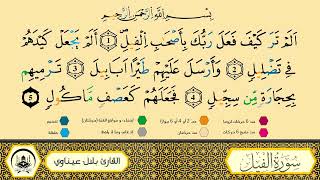 بِسْمِ اللَّهِ الرَّحْمَٰنِ الرَّحِيمِ
أَلَمْ تَرَ كَيْفَ فَعَلَ رَبُّكَ بِأَصْحَٰبِ ٱلْفِيلِ ١ أَلَمْ يَجْعَلْ كَيْدَهُمْ
فِي تَضْلِيلٍ ٢ وَأَرْسَلَ عَلَيْهِمْ طَيْرًا أَبَابِيلَ ٣ تَرْمِيهِم
بِحِجَارَةٍ مِّن سِجِّيلٍ ٤ فَجَعَلَهُمْ كَعَصْفٍ مَّأْكُولٍۭ ٥
سورة الفيل
القارئ بلال عيناوي